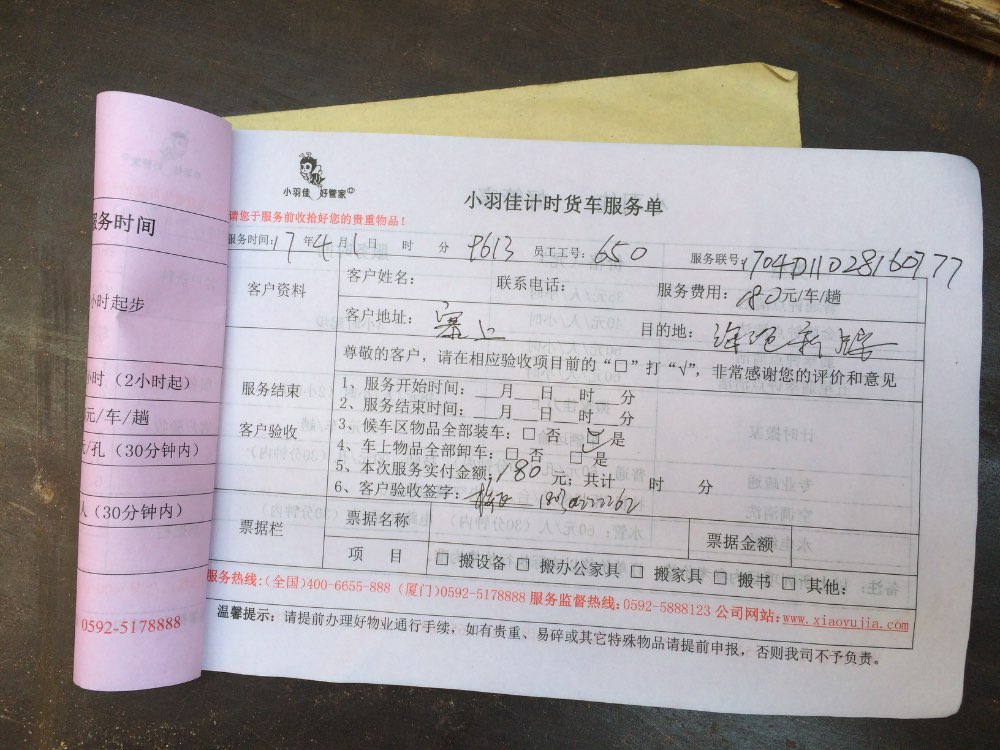 小羽佳 好管家
小羽佳计时货车服务单
请您于服务前收拾好您的贵重物品！
服务时间：17年4月1日 时 分 9613 员工工号：650 服务联号：1704D11028160777
客户资料
客户姓名： 联系电话： 服务费用：180元/车/趟
客户地址：寨上 目的地：
尊敬的客户，请在相应验收项目前的“□”打“√”，非常感谢您的评价和意见
服务结束
客户验收
1、服务开始时间：__月__日__时__分
2、服务结束时间：__月__日__时__分
3、候车区物品全部装车：□ 否 ☑ 是
4、车上物品全部卸车：□ 否 □ 是
5、本次服务实付金额：180元；共计 时 分
6、客户验收签字：
票据栏
票据名称 票据金额
项 目 □ 搬设备 □ 搬办公家具 □ 搬家具 □ 搬书 □ 其他：
服务热线：（全国）400-6655-888（厦门）0592-5178888 服务监督热线：0592-5888123 公司网站：www.xiaoyujia.com
温馨提示：请提前办理好物业通行手续，如有贵重、易碎或其它特殊物品请提前申报，否则我司不予负责。
服务时间
小时起步
小时（2小时起）
元/车/趟
元/孔（30分钟内）
人（30分钟内）
0592-5178888